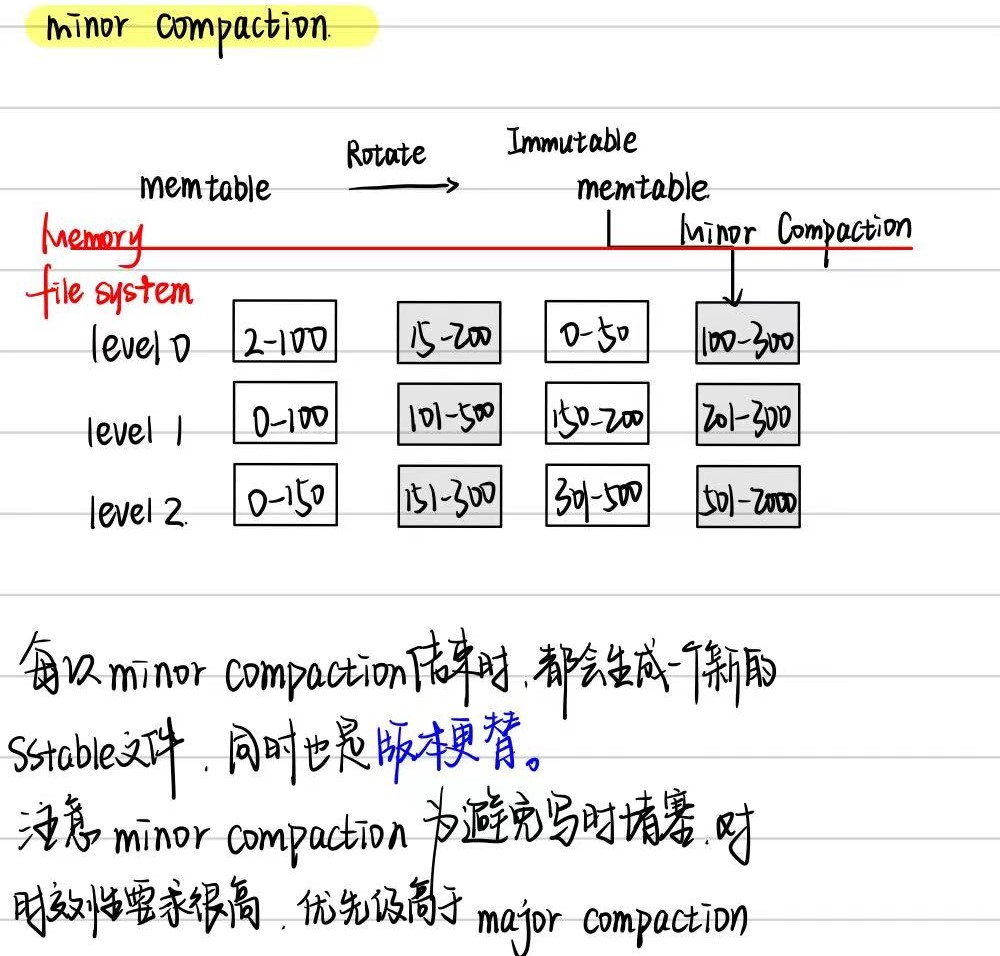 minor compaction.
Rotate
Immutable
memtable
memtable.
Memory
Minor Compaction
file system
level 0 2-100 15-200 0-50 100-300
level 1 0-100 101-500 150-200 201-300
level 2. 0-150 151-300 301-500 501-2000
每次minor compaction结束时,都会生成一个新的
SStable文件,同时也是版本更替。
注意 minor compaction 为避免写时堵塞,对
时效性要求很高,优先级高于 major compaction